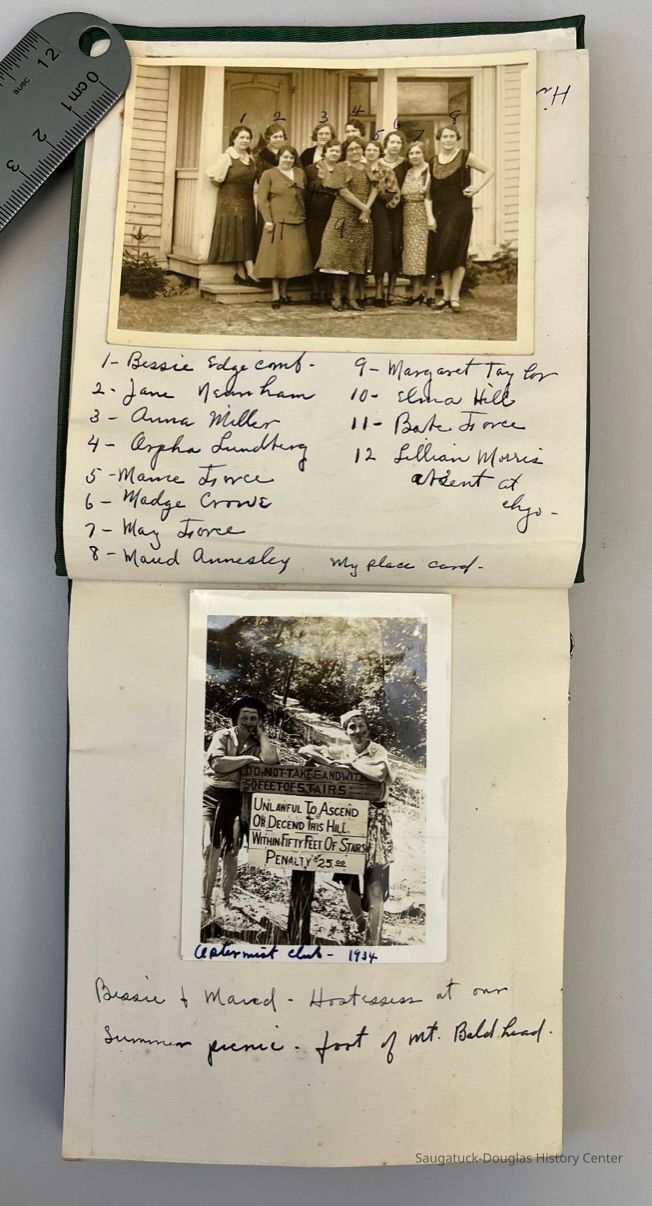 BURC
12
0cm1
2
3
Hi
1 2 3 4 5 6 7 8
11 9
1- Bessie Edgecomb-
2- Jane Newnham
3- Anna Miller
4- Orpha Lundberg
5- Mame Force
6- Madge Crowe
7- May Force
8- Maud Annesley
9- Margaret Taylor
10- Elma Hill
11- Bate Force
12 Lillian Morris
absent at
chgo-
My place card-
DO NOT TAKE SAND WITH
50 FEET OF STAIRS
UNLAWFUL TO ASCEND
OR DECEND THIS HILL
WITHIN FIFTY FEET OF STAIRS
PENALTY $25.00
Optermist club- 1934
Bessie & Maud - Hostesses at our
Summer picnic - foot of Mt. Bald head.
Saugatuck-Douglas History Center